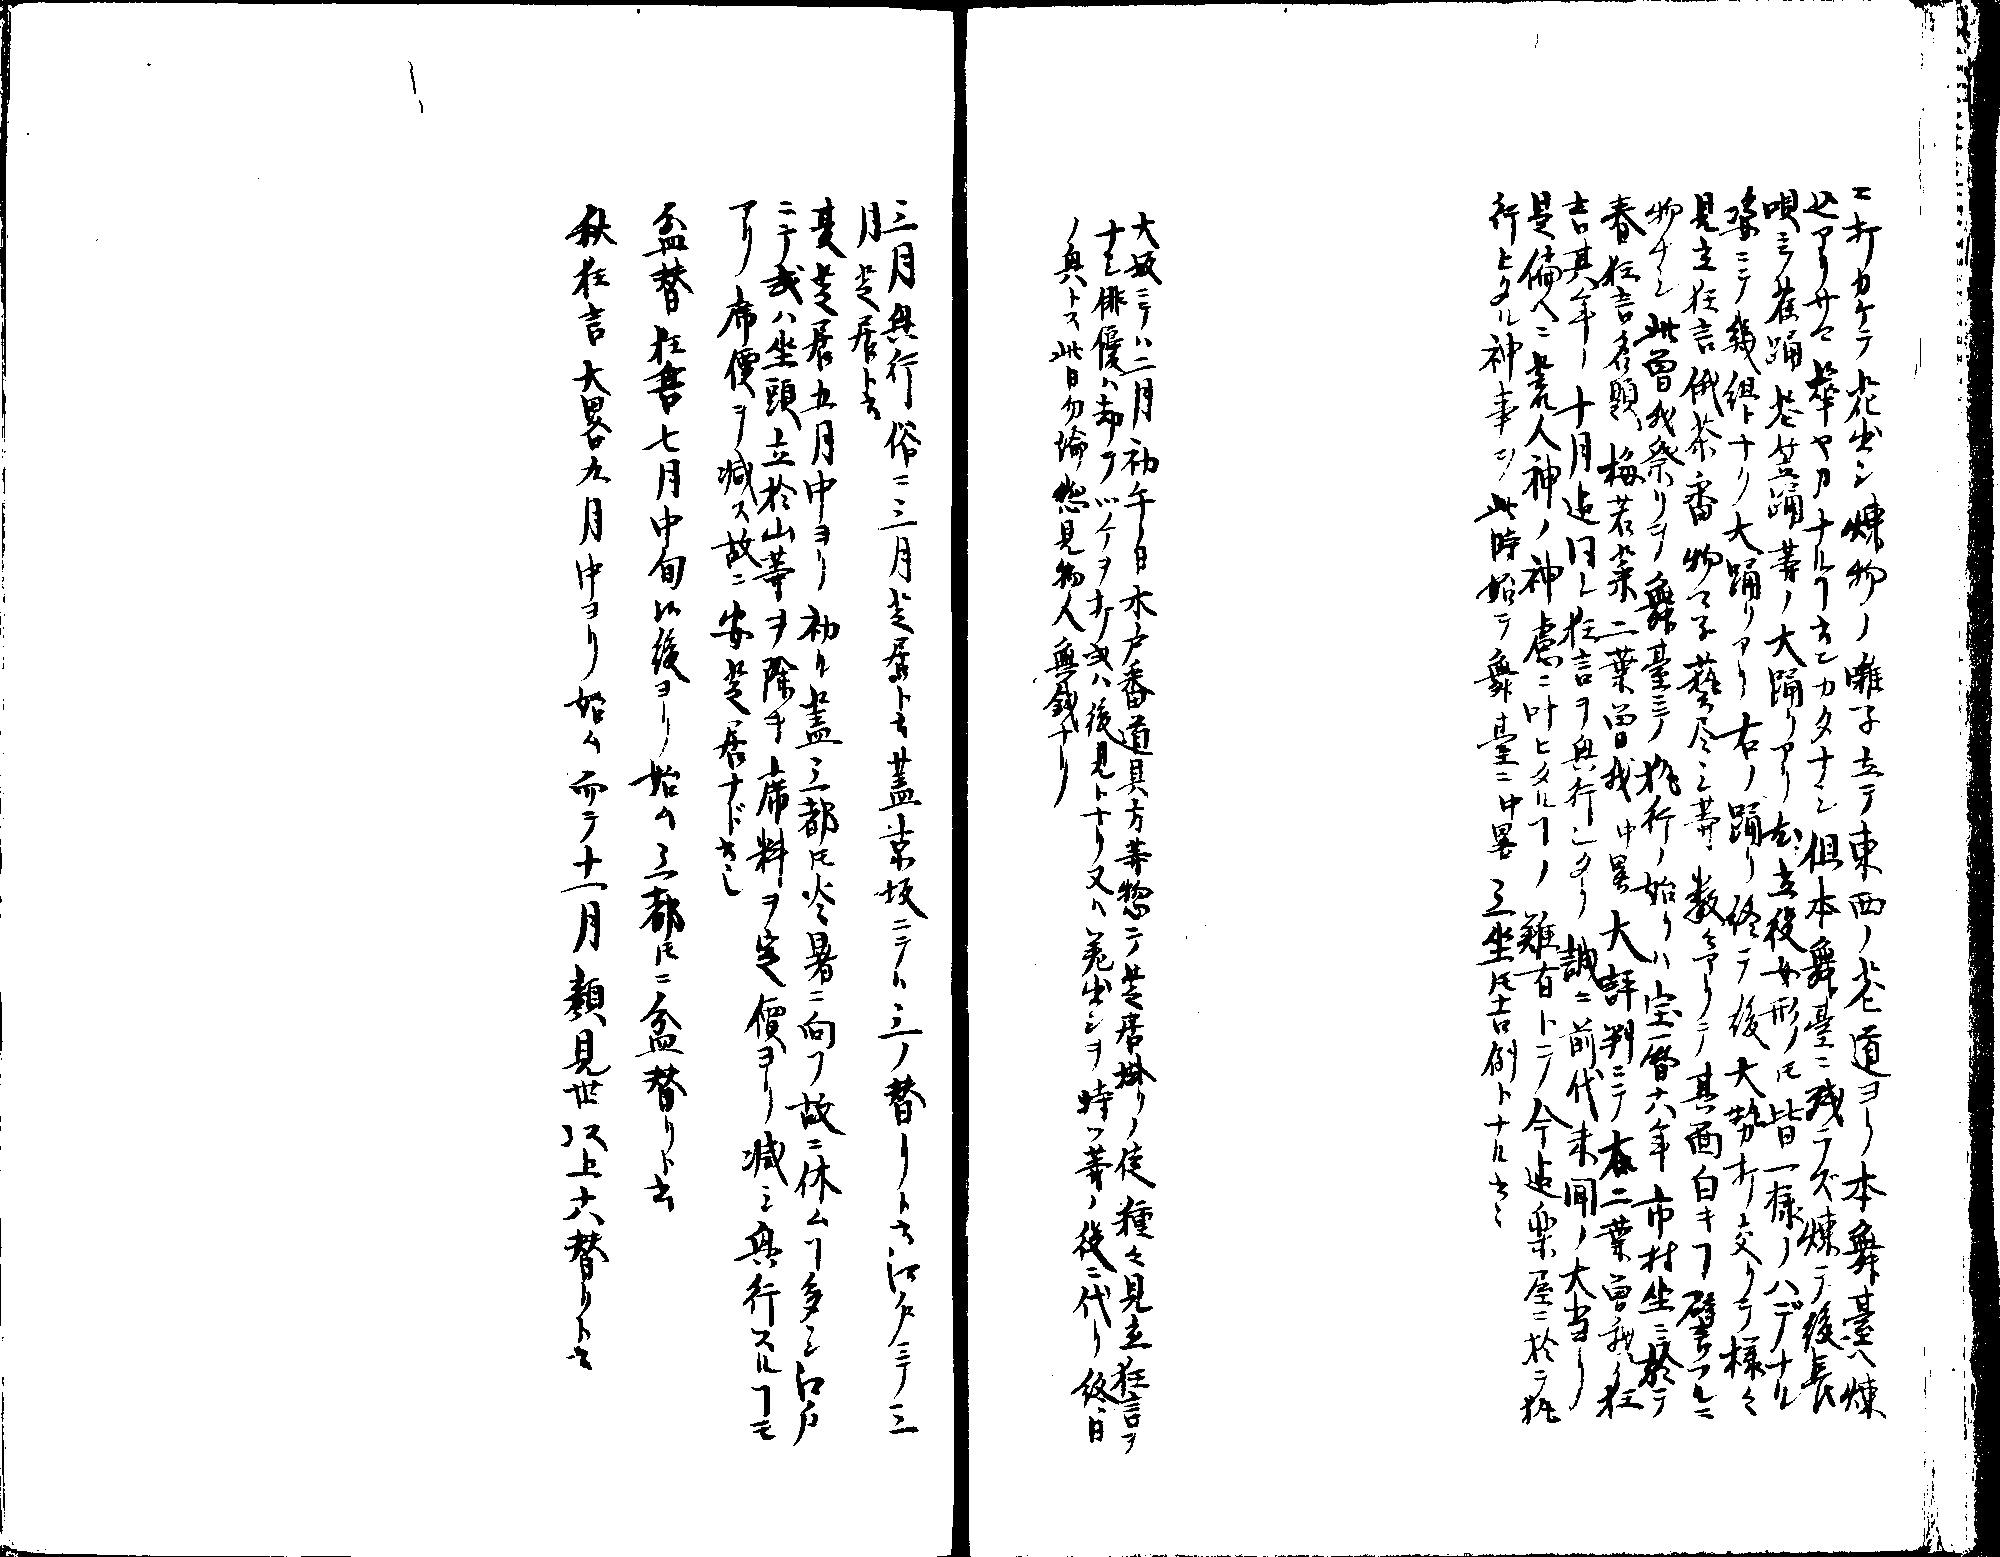 ニ打カケテ花出シ煉物ノ囃子立テ東西ノ花道ヨリ本舞臺ヘ煉
出アリサマ華ヤカナルヿ云ンカタナシ但本舞臺ニ残ラズ煉テ後長
唄ニテ雀踊花笠踊等ノ大踊リアリ立役女形ノ𪜈皆一様ノハデナル
ニテ幾組トナク大踊リアリ右ノ踊リ終テ後大勢打交リテ様々
見立狂言俄茶番物マ子藝尽シ等数々アリテ其面白キヿ譬フルニ
物ナシ此曽我祭リヲ舞臺ニテ執行ノ始リハ宝暦六年市村坐ニ於テ
春狂言名題梅若菜二葉曽我中畧大評判ニテ右二葉曽我ノ狂
言其年ノ十月迄同シ狂言ヲ興行シタリ誠ニ前代未聞ノ大当リ
是偏ヘニ荒人神ノ神慮ニ叶ヒタルヿノ難有トテ今迄楽屋ニ於テ執
行ヒタル神事ヲ此時始テ舞臺ニ中畧三坐𪜈吉例トナル云々
大坂ニテハ二月初午ノ日木戸番道具方等惣テ芝居掛リノ徒種々見立狂言ヲ
ナシ俳優ハ却テツケヲ打或ハ後見トナリ又ハ差出シヲ時ツ等ノ役ニ代リ終日
ノ興トス此日勿論惣見物人無銭ナリ
三月興行俗ニ三月芝居ト云蓋京坂ニテハ三ノ替リト云江戸ニテ三
月芝居ト云
夏芝居五月中ヨリ初ル蓋三都𪜈炎暑ニ向フ故ニ休ムヿ多シ江戸
ニテ或ハ坐頭立於山等ヲ除キ席料ヲ定價ヨリ減シ興行スルヿモ
アリ席價ヲ減ス故ニ安芝居ナドヽ云
盆替狂言七月中旬以後ヨリ始ム三都𪜈ニ盆替リト云
秋狂言大畧九月中ヨリ始ム而テ十一月顔見世以上六替リト云